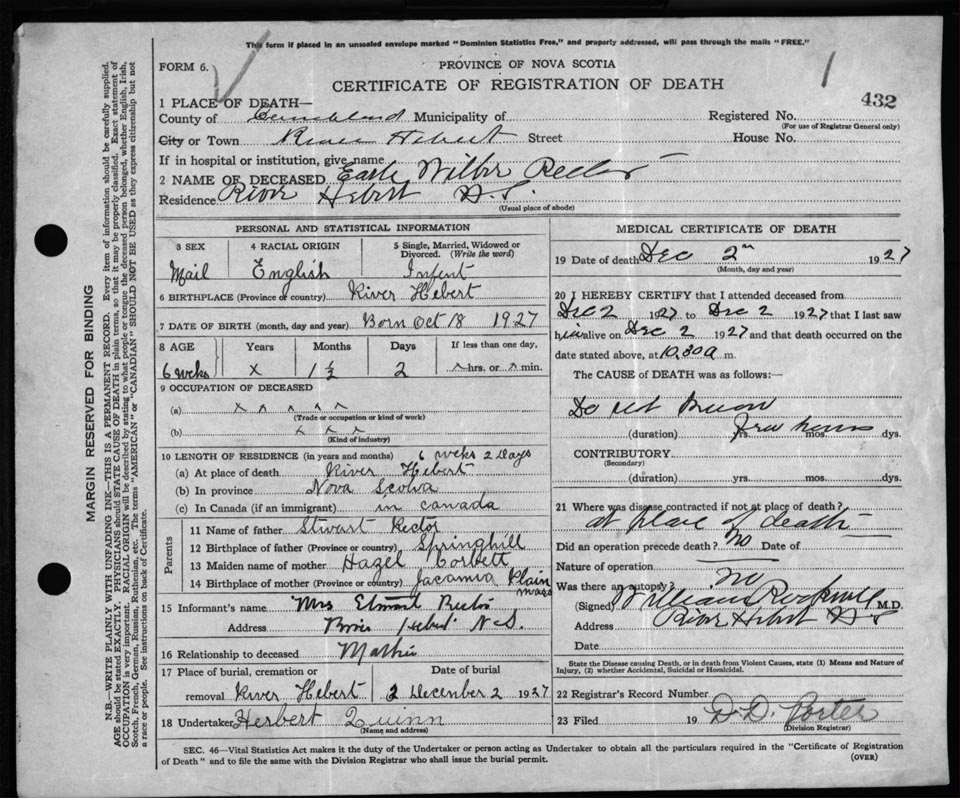 This form if placed in an unsealed envelope marked "Dominion Statistics Free," and properly addressed, will pass through the mails "FREE."
FORM 6.
PROVINCE OF NOVA SCOTIA
CERTIFICATE OF REGISTRATION OF DEATH
432
1 PLACE OF DEATH—
County of Cumberland Municipality of Registered No.
(For use of Registrar General only)
City or Town River Hebert Street House No.
If in hospital or institution, give name
2 NAME OF DECEASED Earle Wilbr Rector
Residence River Hebert N.S.
(Usual place of abode)
PERSONAL AND STATISTICAL INFORMATION
3 SEX 4 RACIAL ORIGIN 5 Single, Married, Widowed or Divorced. (Write the word)
Mail English Infent
6 BIRTHPLACE (Province or country) River Hebert
7 DATE OF BIRTH (month, day and year) Born Oct 18 1927
8 AGE Years Months Days If less than one day,
6 weks x 1½ 2 hrs. or min.
9 OCCUPATION OF DECEASED
(a) x x x x x
(Trade or occupation or kind of work)
(b) x x x
(Kind of industry)
10 LENGTH OF RESIDENCE (in years and months) 6 weks 2 Days
(a) At place of death River Hebert
(b) In province Nova Scotia
(c) In Canada (if an immigrant) in canada
Parents
11 Name of father Stwart Rector
12 Birthplace of father (Province or country) Springhill
13 Maiden name of mother Hazel Corbett
14 Birthplace of mother (Province or country) Jacamia Plain mass
15 Informant's name Mrs Rector
Address River Hebert N.S.
16 Relationship to deceased Mother
17 Place of burial, cremation or removal River Hebert
Date of burial 2 December 2 1927
18 Undertaker Herbert Quinn
(Name and address)
MEDICAL CERTIFICATE OF DEATH
19 Date of death Dec 2nd 1927
(Month, day and year)
20 I HEREBY CERTIFY that I attended deceased from
Dec 2 1927 to Dec 2 1927 that I last saw
him alive on Dec 2 1927 and that death occurred on the
date stated above, at 10,30 a m.
The CAUSE of DEATH was as follows:—
Do not know
(duration) few hours yrs. mos. dys.
CONTRIBUTORY
(Secondary)
(duration) yrs. mos. dys.
21 Where was disease contracted if not at place of death?
at place of death
Did an operation precede death? no Date of
Nature of operation
Was there an autopsy? no
(Signed) William Rockwell M.D.
Address River Hebert N S
Date
State the Disease causing Death, or in death from Violent Causes, state (1) Means and Nature of Injury, (2) whether Accidental, Suicidal or Homicidal.
22 Registrar's Record Number
23 Filed 19 D. D. Porter
(Division Registrar)
SEC. 46—Vital Statistics Act makes it the duty of the Undertaker or person acting as Undertaker to obtain all the particulars required in the "Certificate of Registration
of Death" and to file the same with the Division Registrar who shall issue the burial permit.
(OVER)
MARGIN RESERVED FOR BINDING
N.B.—WRITE PLAINLY WITH UNFADING INK—THIS IS A PERMANENT RECORD. Every item of information should be carefully supplied.
AGE should be stated EXACTLY. PHYSICIANS should STATE CAUSE OF DEATH in plain terms, so that it may be properly classified. Exact statement of
OCCUPATION is very important. RACIAL ORIGIN will be described by stating to what people or tongue the deceased person belonged, whether English, Irish,
Scotch, French, German, Russian, Ruthenian, etc. The terms "AMERICAN" or "CANADIAN" SHOULD NOT BE USED as they express citizenship but not
a race or people. See instructions on back of Certificate.